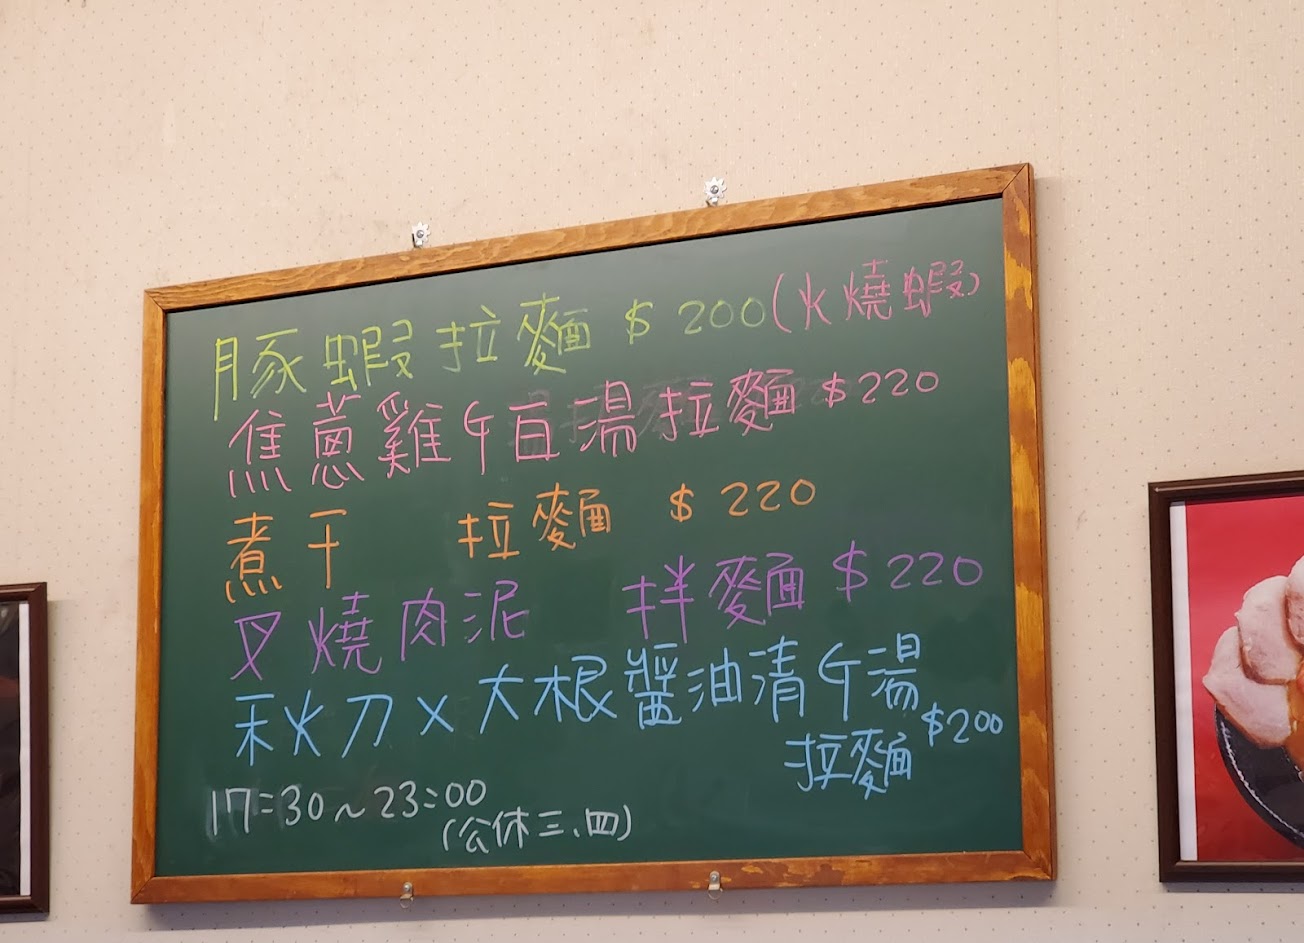 豚蝦拉麵 $200(火燒蝦)
焦蔥雞ㄘ白湯拉麵 $220
煮干 拉麵 $220
叉燒肉泥 拌麵 $220
秋刀×大根醬油清ㄘ湯
拉麵 $200
17:30~23:00
(公休三、四)